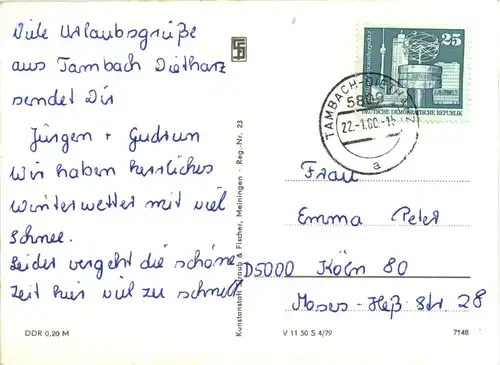 Viele Urlaubsgrüße
aus Tambach Dietharz
sendet Dir
Jürgen + Gudrun
Wir haben herrliches
Winterwetter mit viel
Schnee.
Leider vergeht die schöne
Zeit hier viel zu schnell
DDR 0,20 M
Kunstanstalt Straub & Fischer, Meiningen · Reg.-Nr. 23
25
DEUTSCHE DEMOKRATISCHE REPUBLIK
TAMBACH-DIETHARZ
22.-1.80.-15
a
Frau
Emma Peter
D5000 Köln 80
Moses-Heß-Str. 28
V 11 50 S 4/79
7148